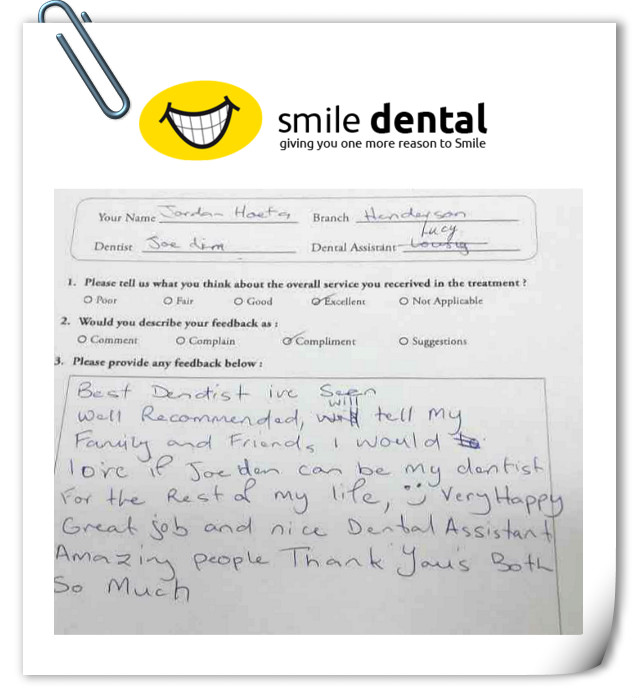 smile dental
giving you one more reason to Smile
Your Name Jordan Haeta Branch Henderson
Lucy
Dentist Joe dim Dental Assistant
1. Please tell us what you think about the overall service you recerived in the treatment ?
Poor Fair Good Excellent Not Applicable
2. Would you describe your feedback as :
Comment Complain Compliment Suggestions
3. Please provide any feedback below :
Best Dendist ive Seen
will
Well Recommended, tell My
Family and Friends I would
love if Joe den can be my dentist
For the Rest of my life, Very Happy
Great job and nice Dental Assistant
Amazing people Thank You's Both
So Much